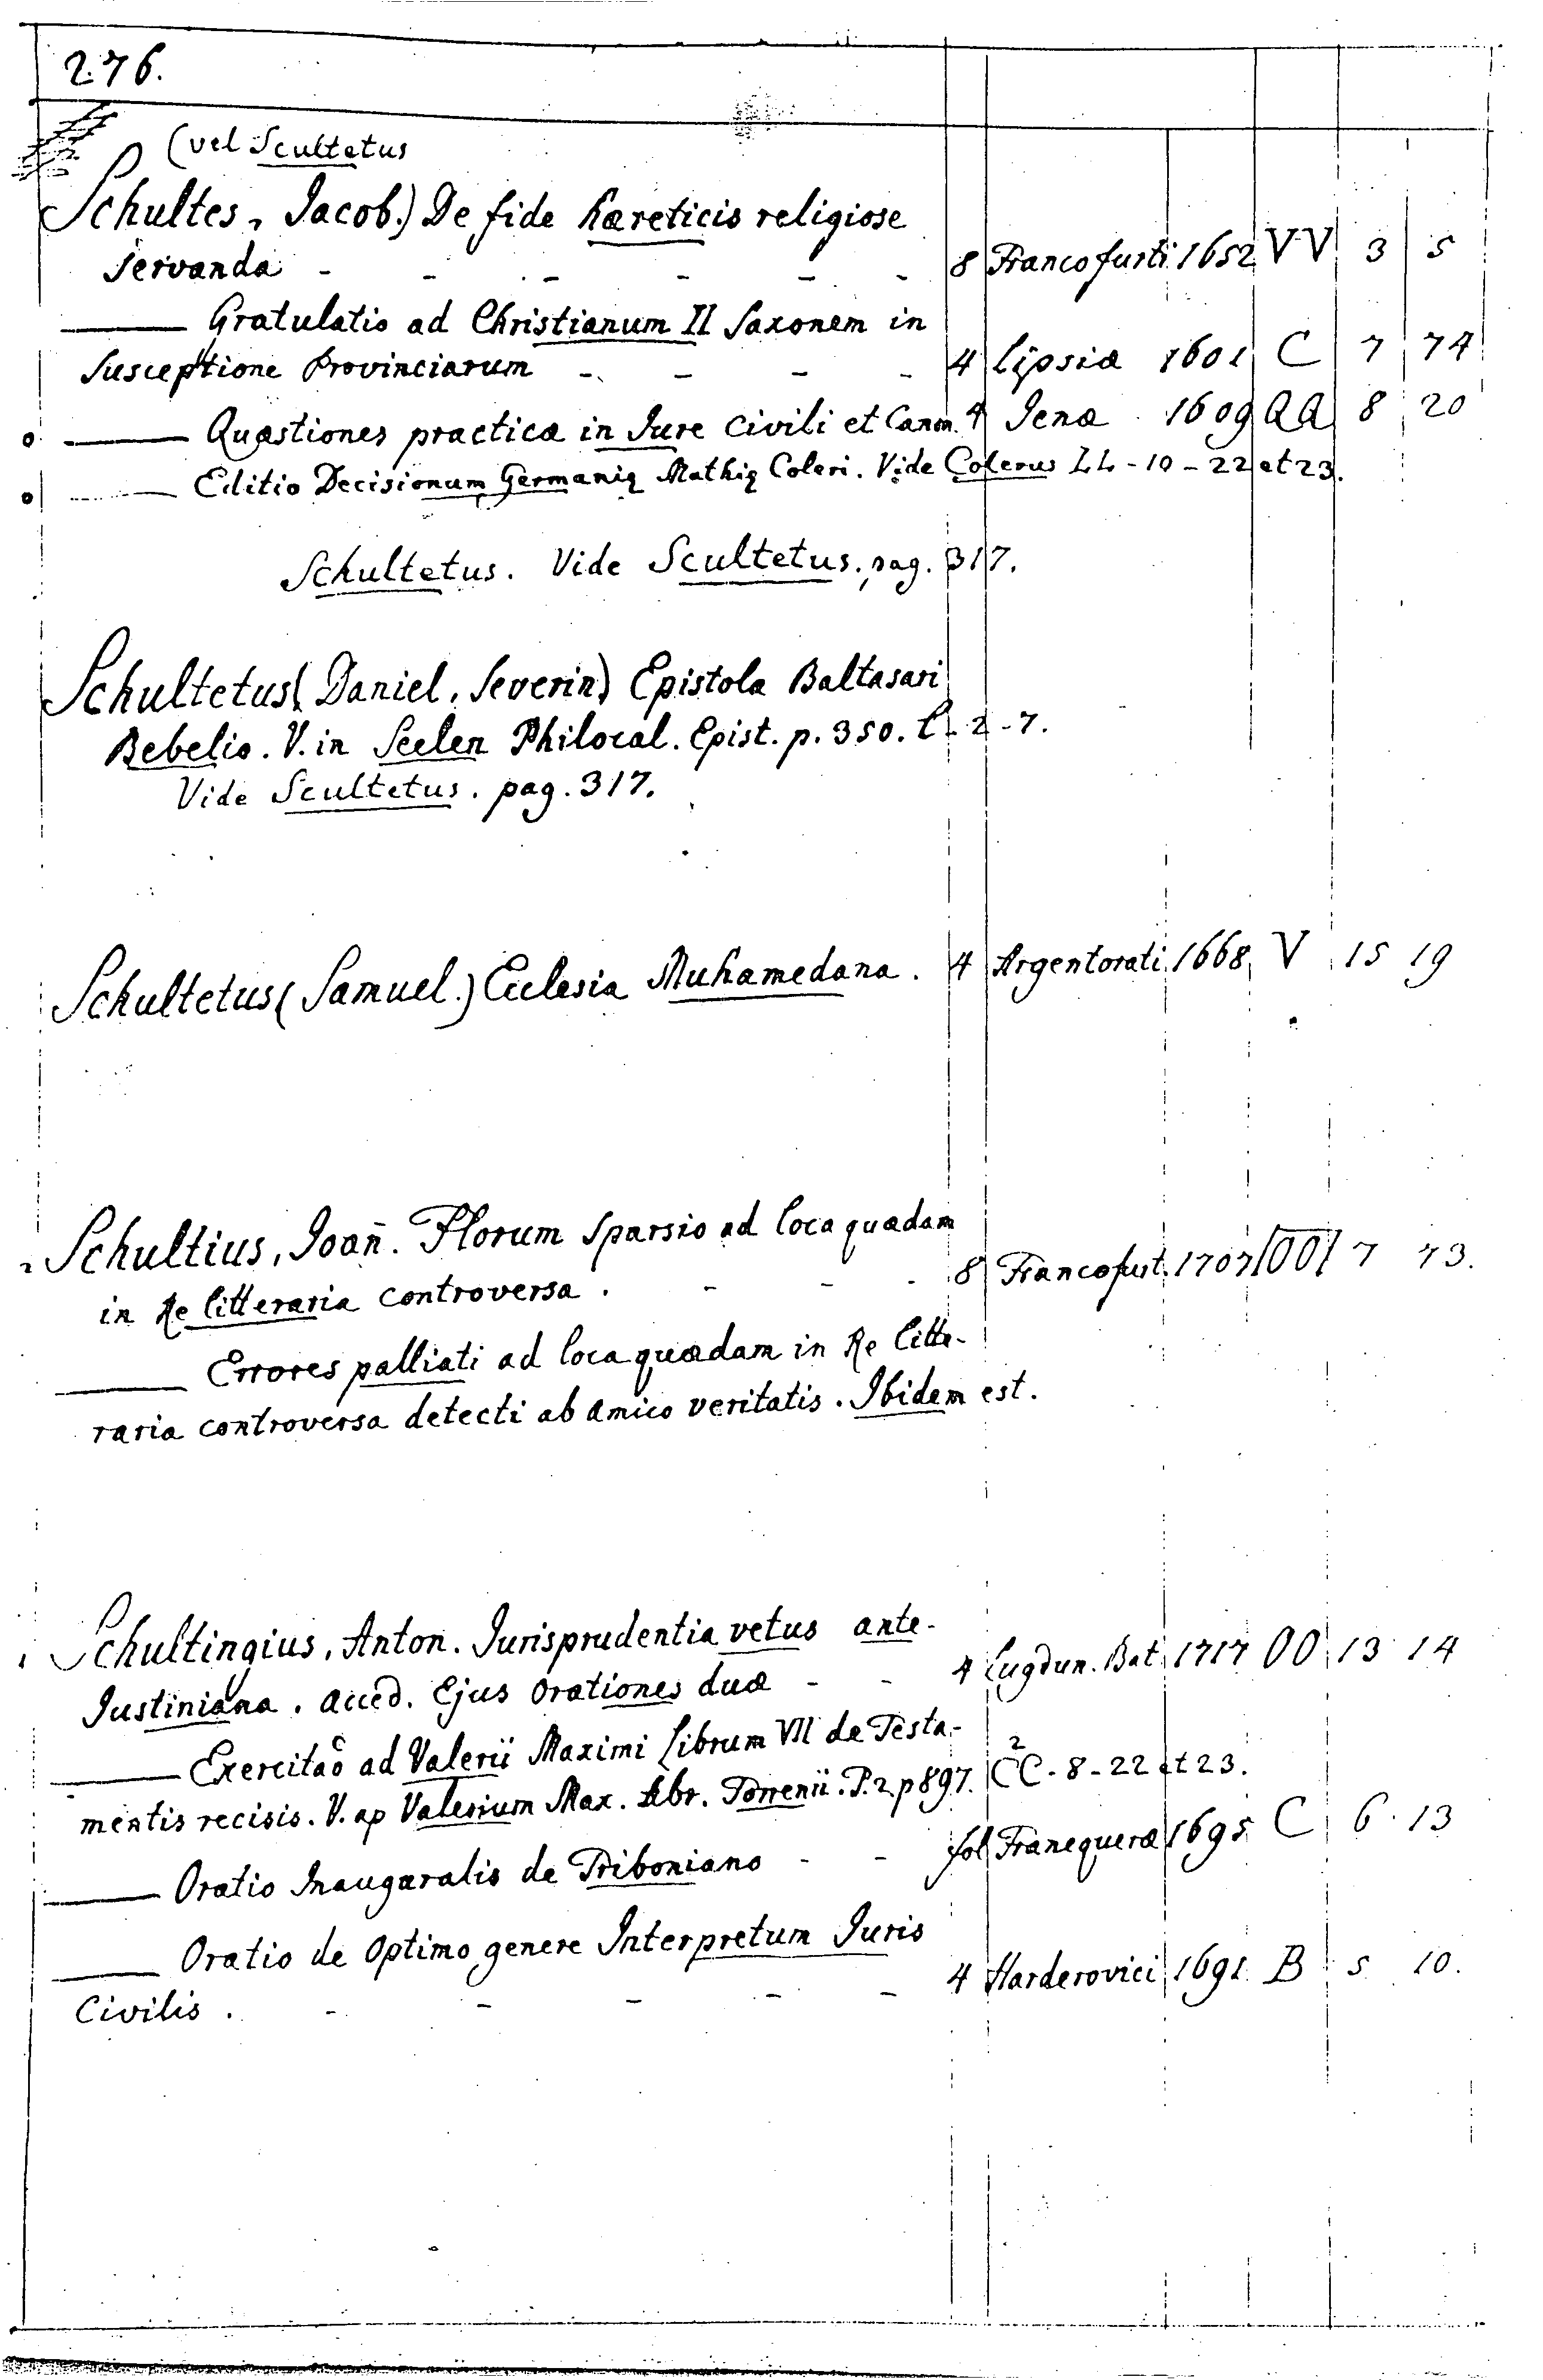 276.
(vel Scultetus
Schultes, Jacob.) De fide hæreticis religiose
servanda - - - - - - 8 Francofurti 1652 VV 3 5
——— Gratulatio ad Christianum II Saxonem in
susceptione Provinciarum - - - - 4 Lipsiæ 1601 C 7 74
o ——— Quæstiones practicæ in Jure Civili et Canon. 4 Jenæ 1609 QQ 8 20
o ——— Editio Decisionum Germanię Mathię Coleri. Vide Colerus LL - 10 - 22 et 23.
Schultetus. Vide Scultetus. pag. 317.
Schultetus (Daniel. Severin) Epistola Baltasari
Bebelio. V. in Seelen Philocal. Epist. p. 350. C - 2 - 7.
Vide Scultetus. pag. 317.
Schultetus (Samuel.) Eclesia Muhamedana. 4 Argentorati 1668 V 15 19
Schultius, Joañ. Florum sparsio ad loca quædam
in Re litteraria controversa. - - - 8 Francofurt. 1707 OO 7 73.
——— Errores palliati ad loca quædam in Re litte-
raria controversa detecti ab amico veritatis. Ibidem est.
Schultingius, Anton. Jurisprudentia vetus ante-
Justiniana. Acced. Ejus Orationes duæ - - 4 Lugdun. Bat. 1717 OO 13 14
——— Exercitaõ ad Valerii Maximi Librum VII de Testa-
mentis recisis. V. ap Valerium Max. Abr. Torrenii. P. 2 p 897. CC2 - 8 - 22 et 23.
——— Oratio Inauguralis de Triboniano - - fol Franequeræ 1695 C 6 13
——— Oratio de Optimo genere Interpretum Juris
Civilis. - - - - - 4 Harderovici 1691 B 5 10.